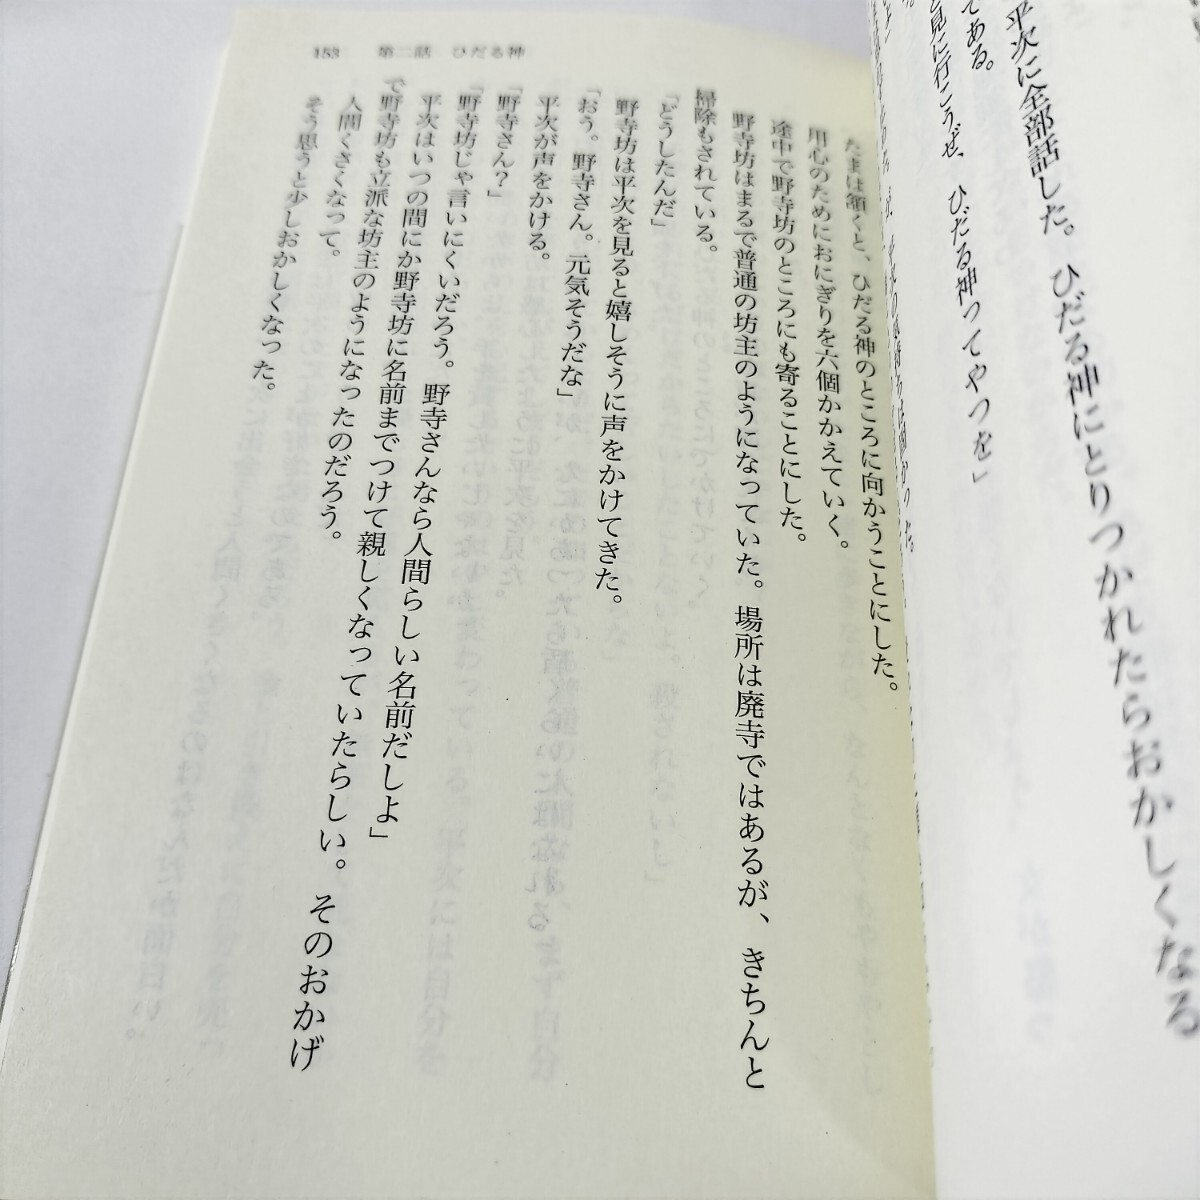 平次に全部話した。ひだる神にとりつかれたらおかしくなる
である。
見に行こうぜ、ひだる神ってやつを」
153 第二話 ひだる神
たまは頷くと、ひだる神のところに向かうことにした。
用心のためにおにぎりを六個かかえていく。
途中で野寺坊のところにも寄ることにした。
野寺坊はまるで普通の坊主のようになっていた。場所は廃寺ではあるが、きちんと
掃除もされている。
「どうしたんだ」
野寺坊は平次を見ると嬉しそうに声をかけてきた。
「おう。野寺さん。元気そうだな」
平次が声をかける。
「野寺さん?」
「野寺坊じゃ言いにくいだろう。野寺さんなら人間らしい名前だしよ」
平次はいつの間にか野寺坊に名前までつけて親しくなっていたらしい。そのおかげ
で野寺坊も立派な坊主のようになったのだろう。
人間くさくなって。
そう思うと少しおかしくなった。